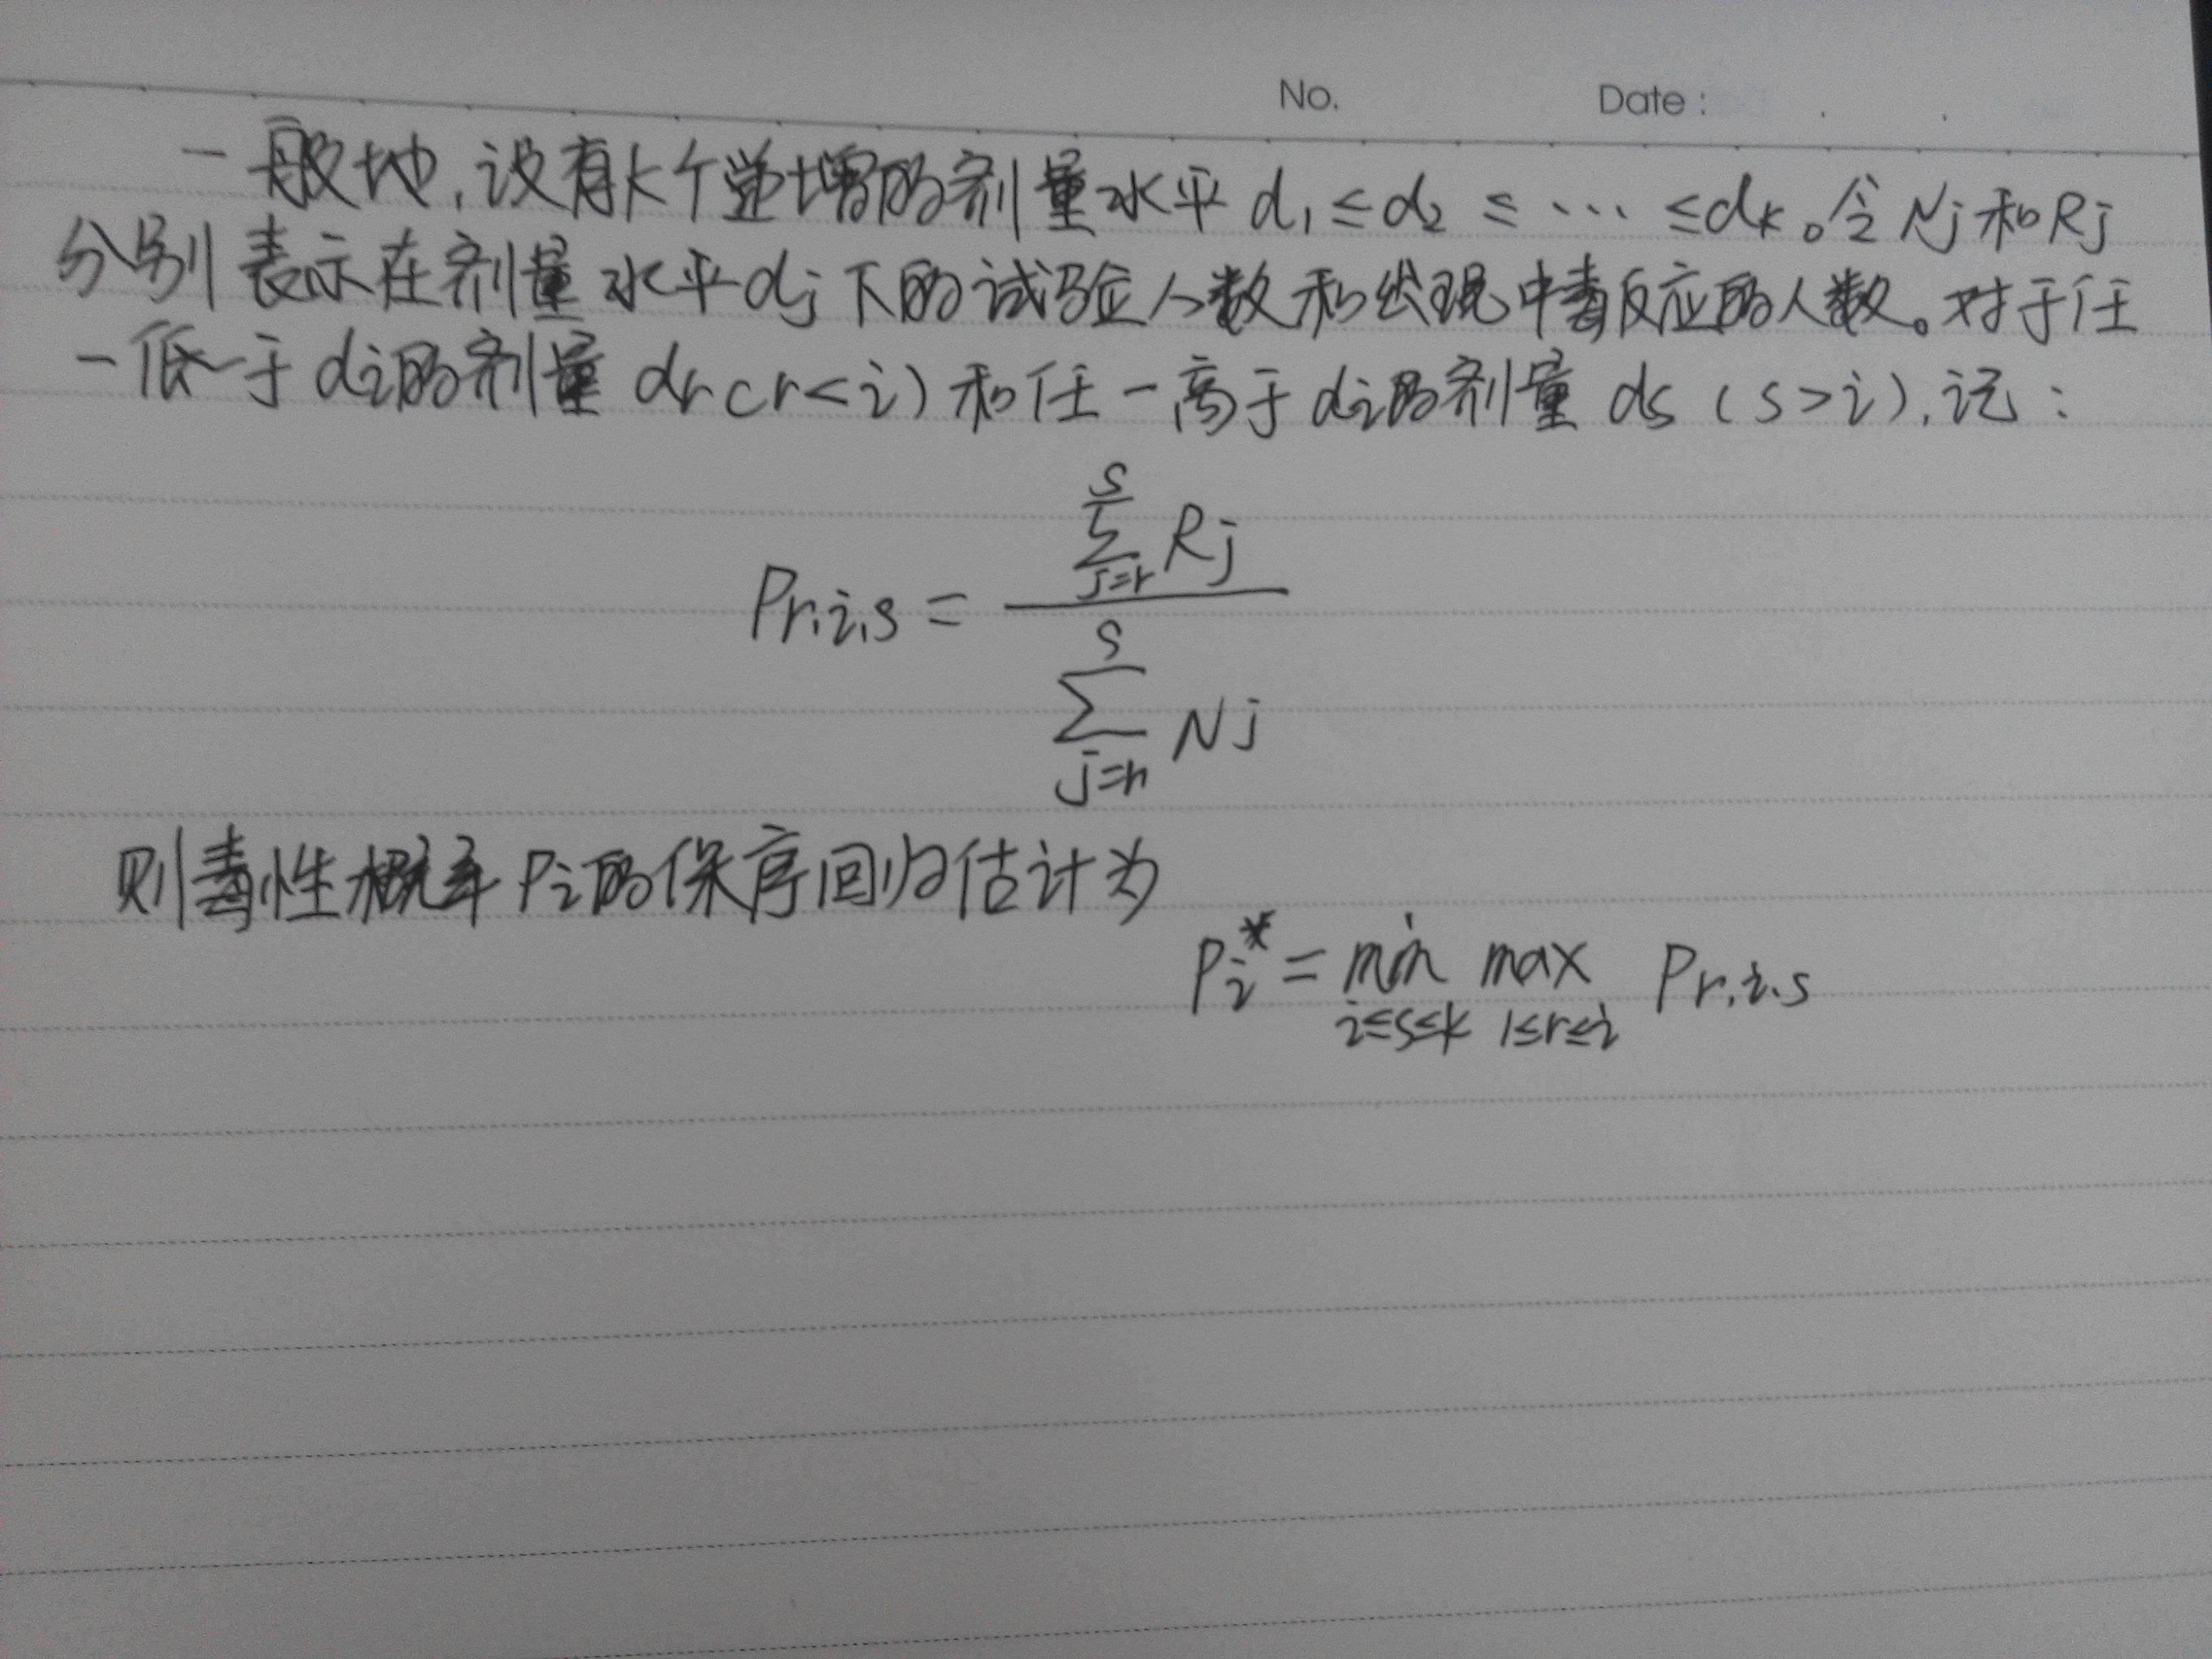 No. Date:
一般地,设有k个递增的剂量水平 d₁≤d₂≤…≤dₖ。令Nj和Rj
分别表示在剂量水平dj下的试验人数和出现中毒反应的人数。对于任
一低于di的剂量 dr(r<i)和任一高于di的剂量 ds(s>i),记:
Pr,i,s = \frac{\sum_{j=r}^{s} Rj}{\sum_{j=r}^{s} Nj}
则毒性概率Pi的保序回归估计为
P_i^* = \min_{i≤s≤k} \max_{1≤r≤i} Pr,i,s